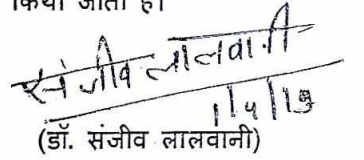 किया जाता है।
संजीव लालवानी
(डॉ. संजीव लालवानी)